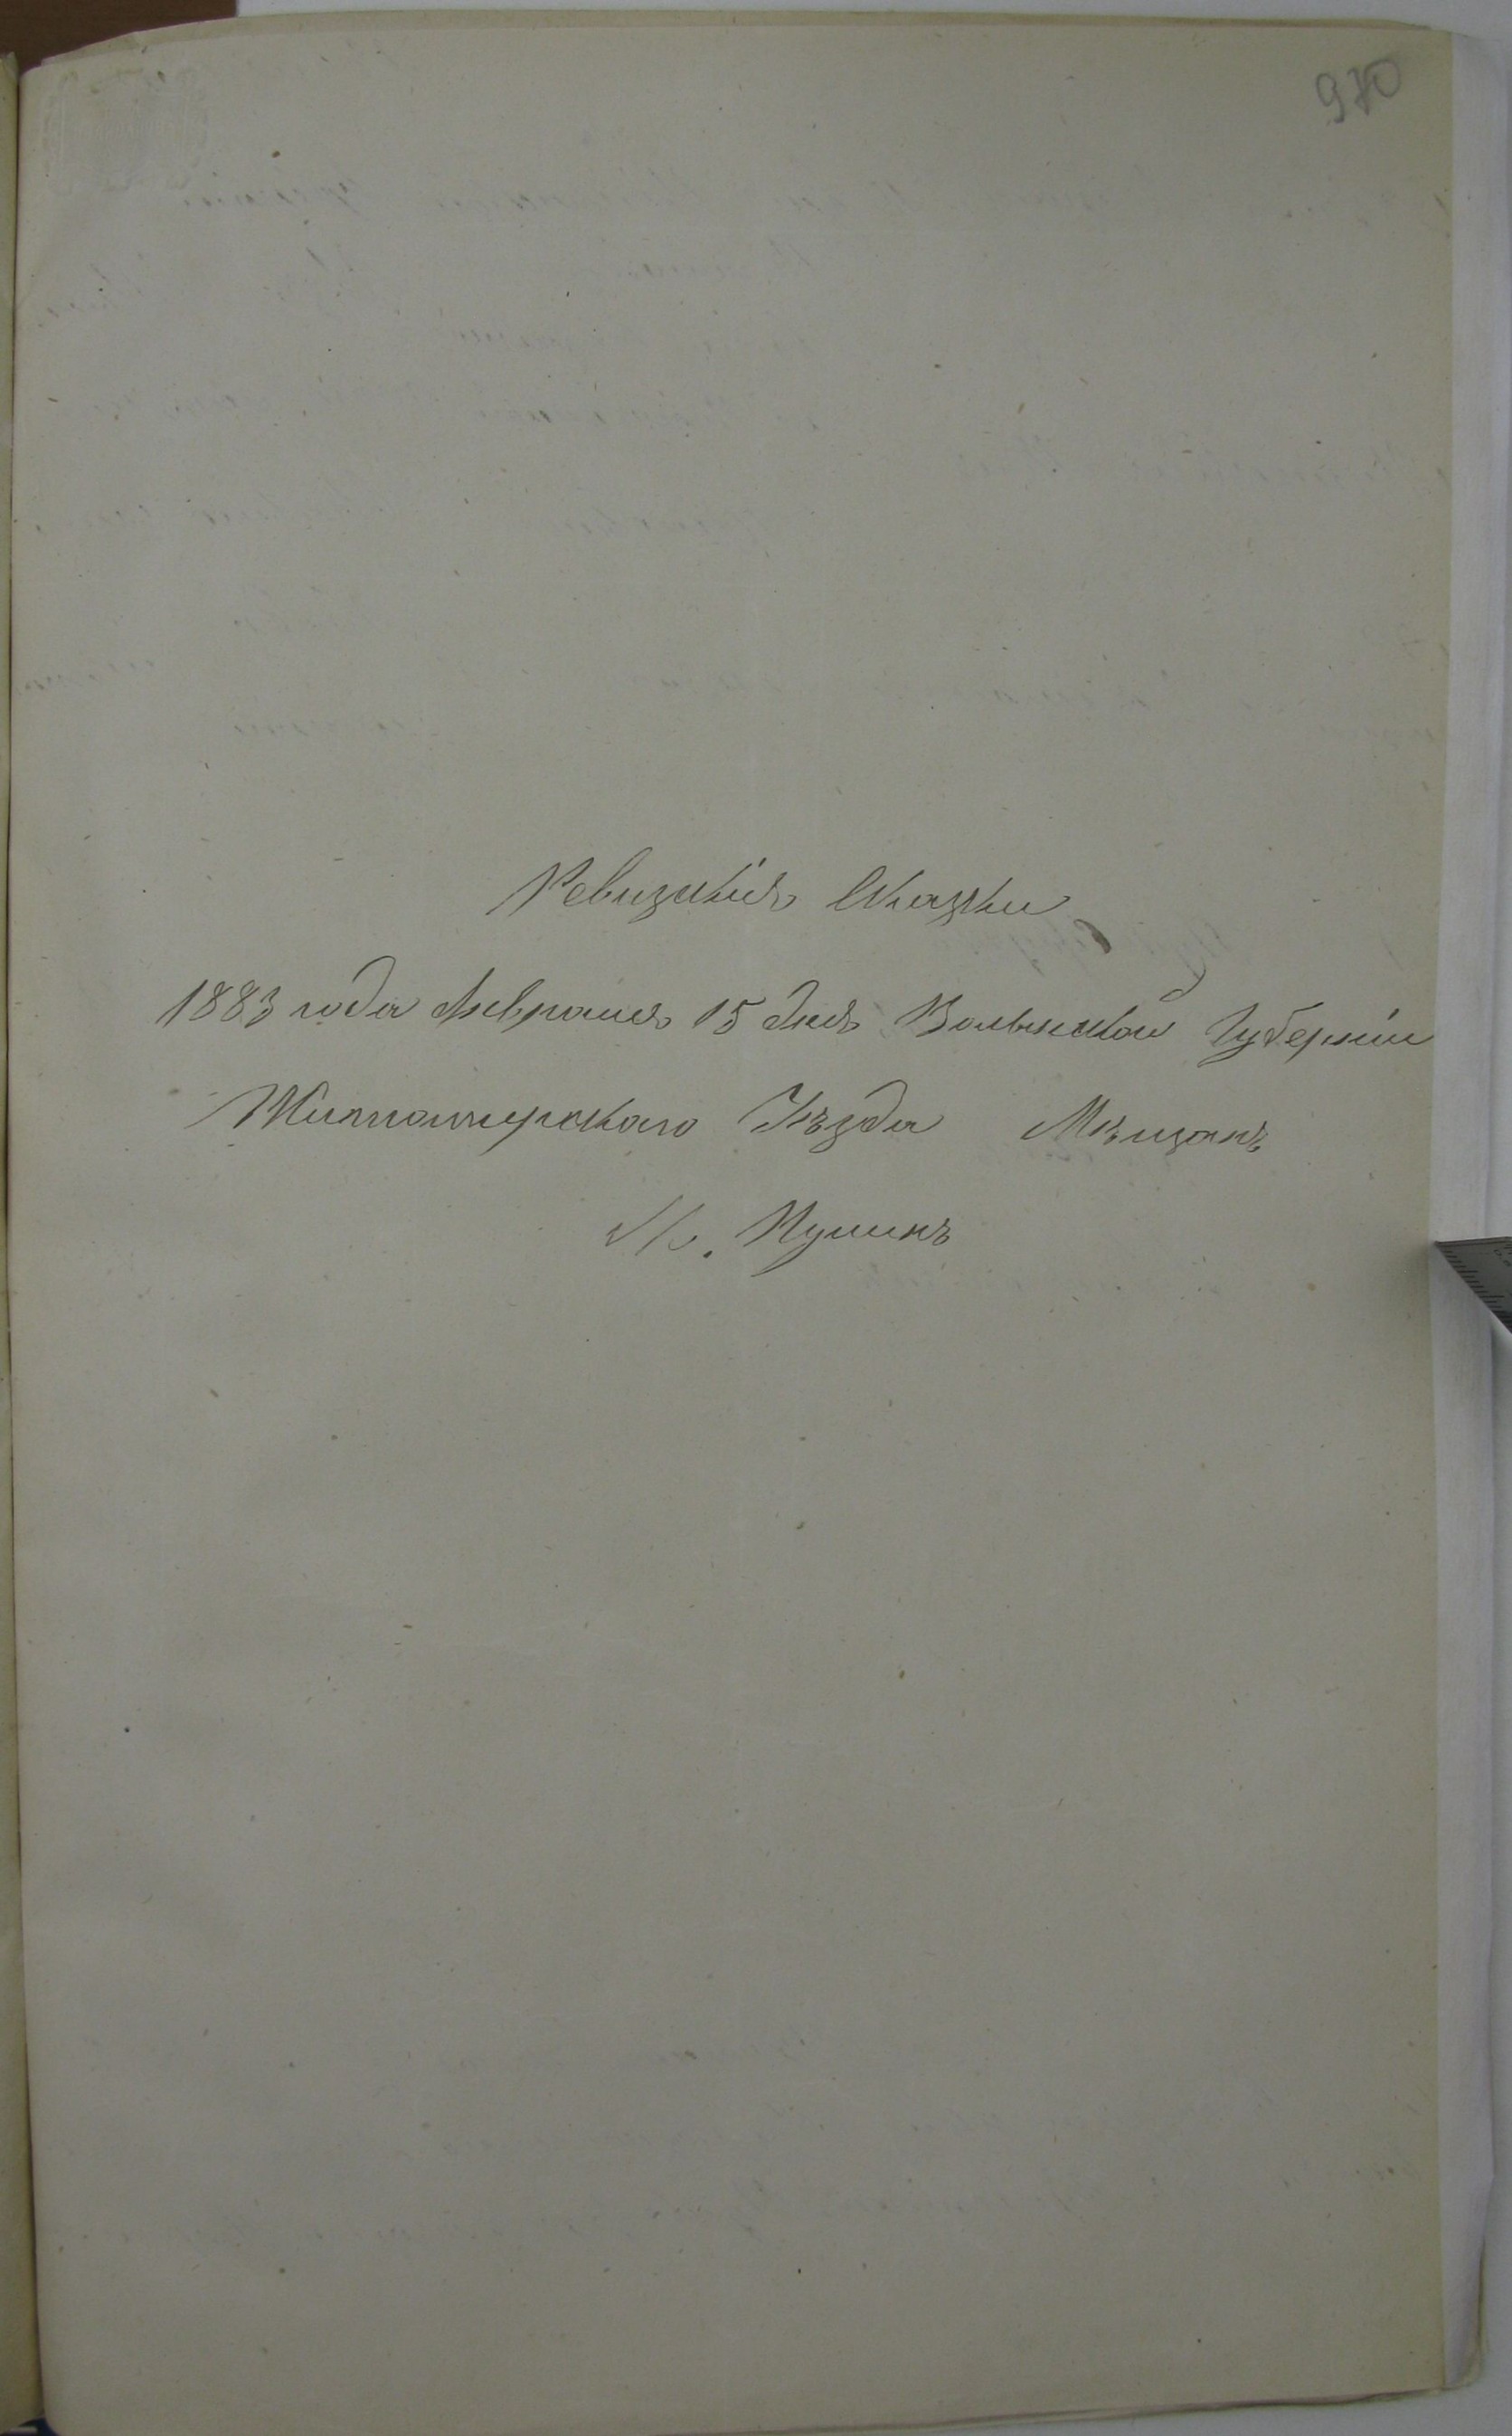 970
Ревизскія Сказки
1883 года Февраля 15 дня Волынской Губерніи
Житомирскаго Уѣзда Мѣщанъ
М. Пулинъ